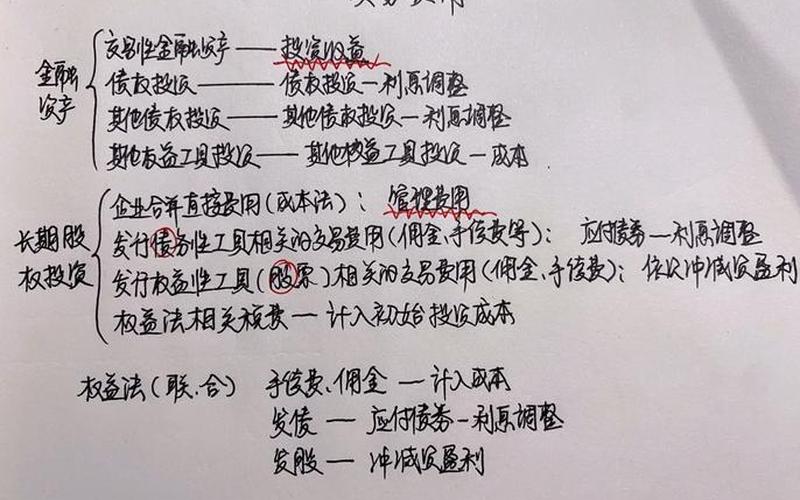 交易费用
金融资产
交易性金融资产——投资收益
债权投资——债权投资—利息调整
其他债权投资——其他债权投资—利息调整
其他权益工具投资——其他权益工具投资—成本
长期股权投资
企业合并直接费用(成本法)：管理费用
发行债务性工具相关的交易费用(佣金、手续费等)：应付债券—利息调整
发行权益性工具(股票)相关的交易费用(佣金、手续费)：依次冲减资盈利
权益法相关税费—计入初始投资成本
权益法(联、合) 手续费、佣金—计入成本
发债—应付债券—利息调整
发股—冲减资盈利